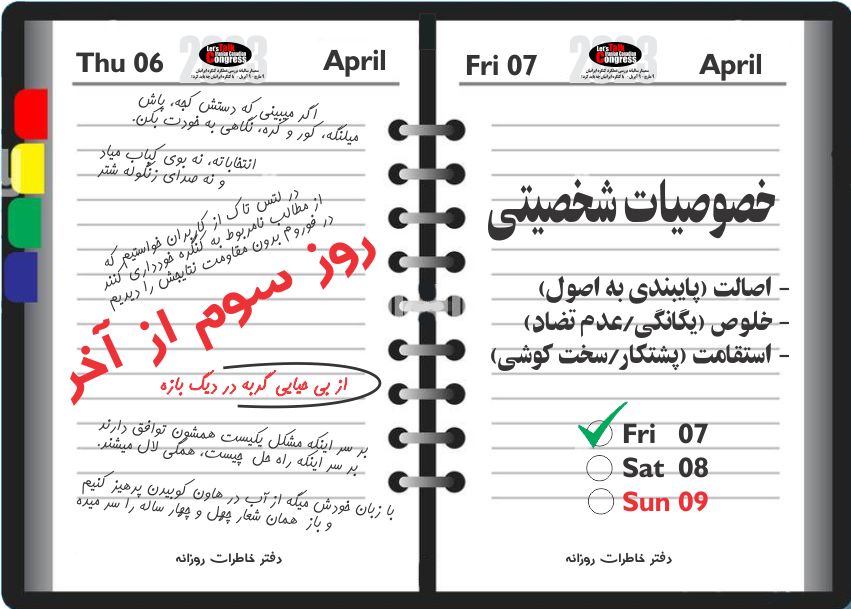 Thu 06
April
2023
Let's Talk
Iranian Canadian
Congress
سمینار سالیانه بررسی عملکرد کنگره ایرانیان
اگر میبینی که دستش کجه، پاش
میلنگه، کور و کره، نگاهی به خودت بکن.
انتفاباته، نه بوی کباب میاد
و نه صدای زنگوله شتر
در لتس تاک از کاربران خواستیم که
از مطالب نامربوط به کنگره خودداری کنند
در فوروم بدون مقاومت نتایجش را دیدیم
روز سوم از آخر
از بی حیایی گربه در دیگ بازه
بر سر اینکه مشکل یکیست همشون توافق دارند
بر سر اینکه راه حل چیست، همگی لال میشند.
با زبان خودش میگه از آب در هاون کوبیدن پرهیز کنیم
و باز همان شعار چهل و چهار ساله را سر میده
دفتر خاطرات روزانه
Fri 07
April
2023
Let's Talk
Iranian Canadian
Congress
سمینار سالیانه بررسی عملکرد کنگره ایرانیان
خصوصیات شخصیتی
- اصالت (پایبندی به اصول)
- خلوص (یگانگی/عدم تضاد)
- استقامت (پشتکار/سخت کوشی)
Fri 07
Sat 08
Sun 09
دفتر خاطرات روزانه